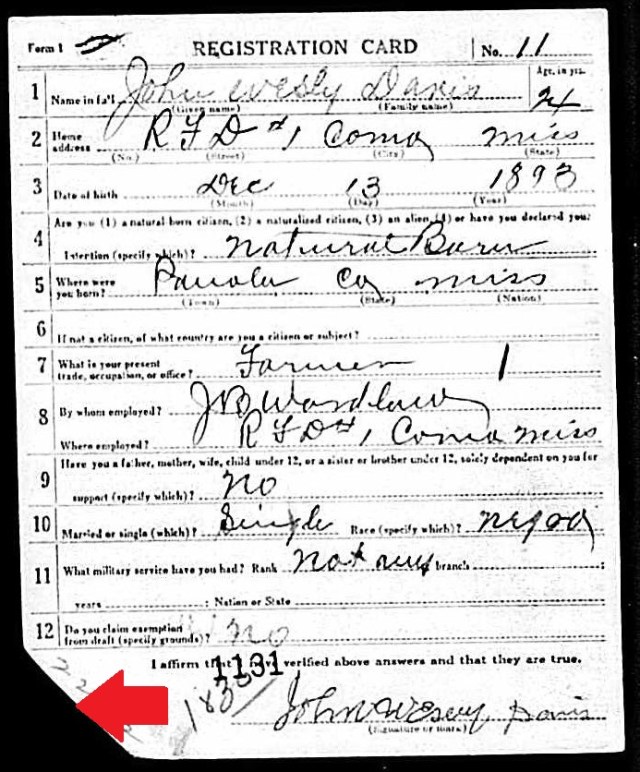 Form 1 REGISTRATION CARD No. 11
1 Name in full John Wesly Davis Age, in yrs. 24
(Given name) (Family name)
2 Home address R F D #1 Como Miss
(No.) (Street) (City) (State)
3 Date of birth Dec 13 1893
(Month) (Day) (Year)
4 Are you (1) a natural born citizen, (2) a naturalized citizen, (3) an alien, (4) or have you declared your
intention (specify which)? Natural Born
5 Where were you born? Panola Co Miss
(Town) (State) (Nation)
6 If not a citizen, of what country are you a citizen or subject?
7 What is your present trade, occupation, or office? Farmer 1
8 By whom employed? J B Wardlaw
Where employed? R F D #1 Como Miss
9 Have you a father, mother, wife, child under 12, or a sister or brother under 12, solely dependent on you for
support (specify which)? No
10 Married or single (which)? Single Race (specify which)? Negro
11 What military service have you had? Rank Not any branch
years ; Nation or State
12 Do you claim exemption from draft (specify grounds)? No
I affirm that 1131 verified above answers and that they are true.
John Wesly Davis
(Signature or mark)